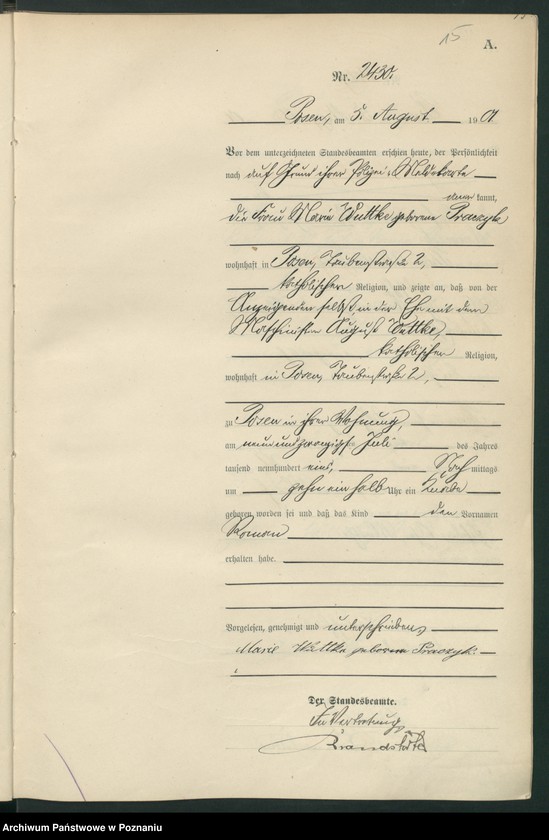 15
A.
Nr. 2430.
Posen, am 5. August 1901
Vor dem unterzeichneten Standesbeamten erschien heute, der Persönlichkeit
nach auf Grund ihrer Polizei-Meldekarte
anerkannt,
die Frau Marie Wuttke geborene Praczyk
wohnhaft in Posen, Taubenstraße 2,
katholischen Religion, und zeigte an, daß von der
Anzeigenden selbst in der Ehe mit dem
Maschinisten August Wuttke,
katholischen Religion,
wohnhaft in Posen, Taubenstraße 2,
zu Posen in ihrer Wohnung,
am neunundzwanzigsten Juli des Jahres
tausend neunhundert eins, Nachmittags
um zehn ein halb Uhr ein Knabe
geboren worden sei und daß das Kind den Vornamen
Roman
erhalten habe.
Vorgelesen, genehmigt und unterschrieben
Marie Wuttke geborene Praczyk.
Der Standesbeamte.
In Vertretung
Archiwum Państwowe w Poznaniu